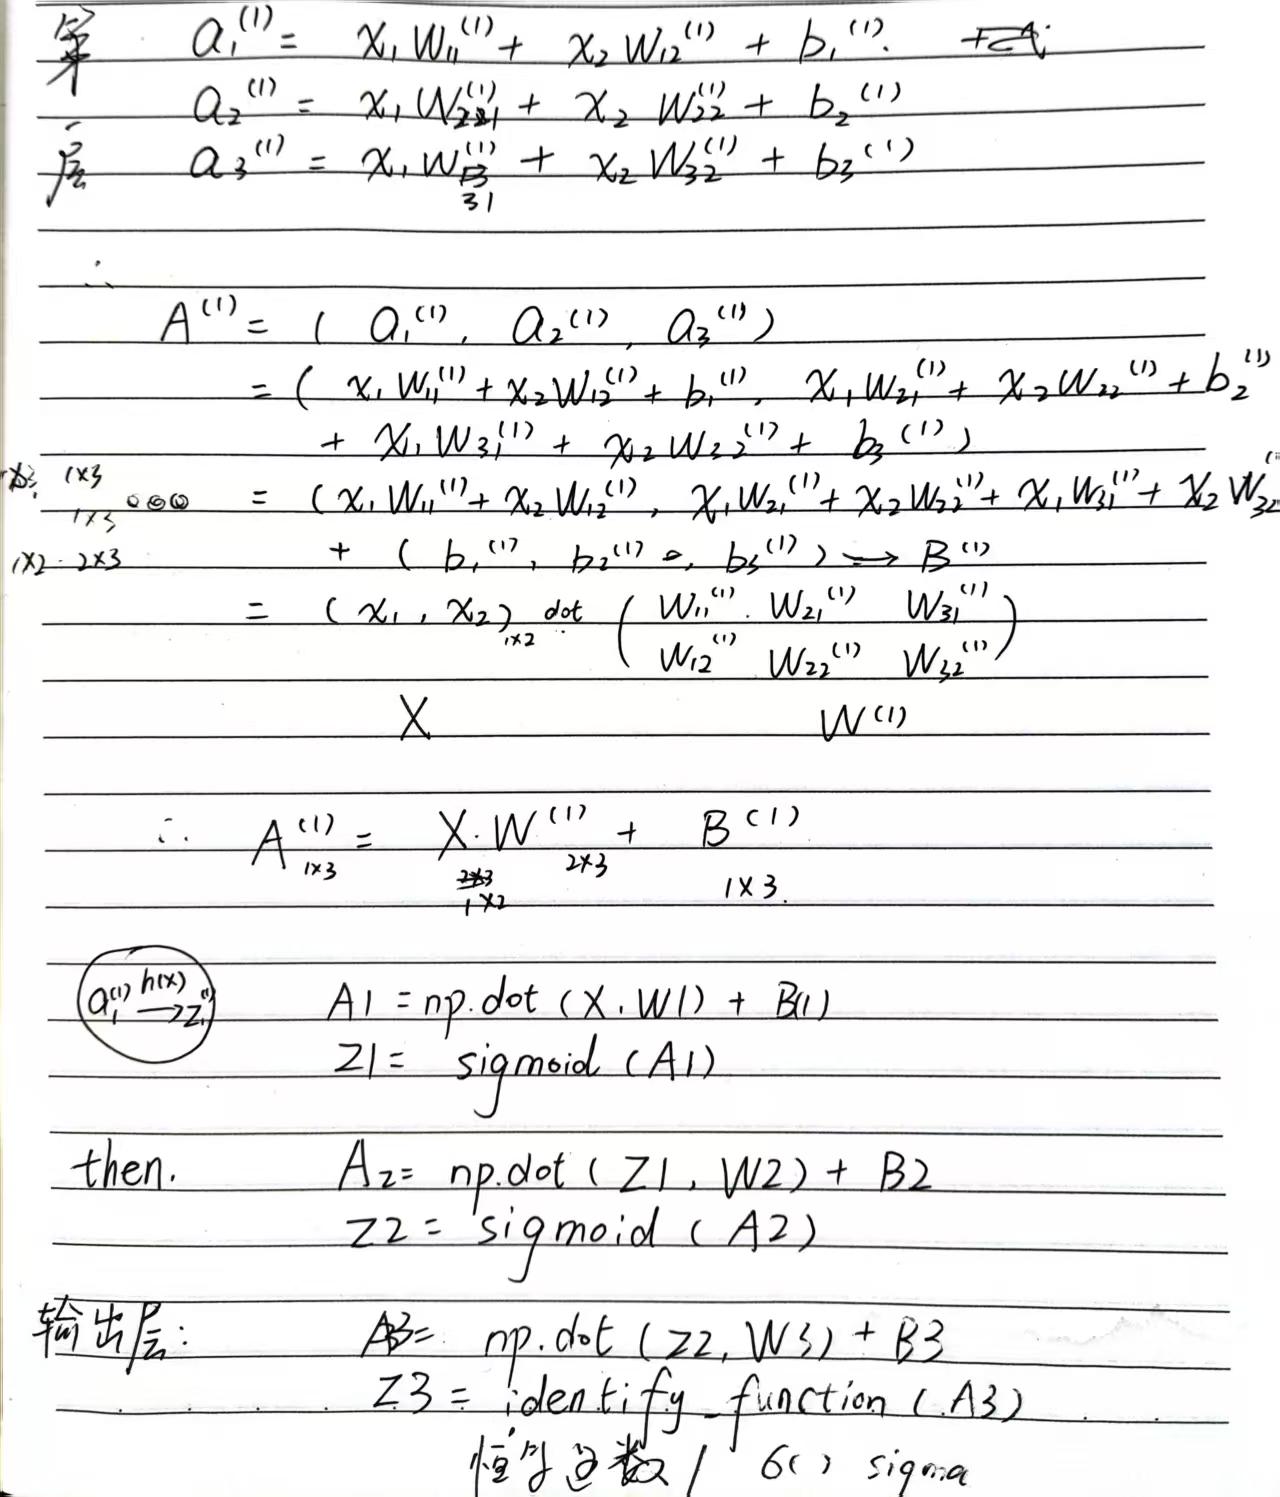 第一层 a₁⁽¹⁾ = x₁W₁₁⁽¹⁾ + x₂W₁₂⁽¹⁾ + b₁⁽¹⁾.
a₂⁽¹⁾ = x₁W₂₁⁽¹⁾ + x₂W₂₂⁽¹⁾ + b₂⁽¹⁾
a₃⁽¹⁾ = x₁W₃₁⁽¹⁾ + x₂W₃₂⁽¹⁾ + b₃⁽¹⁾
∴
A⁽¹⁾ = ( a₁⁽¹⁾, a₂⁽¹⁾, a₃⁽¹⁾ )
= ( x₁W₁₁⁽¹⁾ + x₂W₁₂⁽¹⁾ + b₁⁽¹⁾, x₁W₂₁⁽¹⁾ + x₂W₂₂⁽¹⁾ + b₂⁽¹⁾
+ x₁W₃₁⁽¹⁾ + x₂W₃₂⁽¹⁾ + b₃⁽¹⁾ )
1×3
= ( x₁W₁₁⁽¹⁾ + x₂W₁₂⁽¹⁾, x₁W₂₁⁽¹⁾ + x₂W₂₂⁽¹⁾ + x₁W₃₁⁽¹⁾ + x₂W₃₂⁽¹⁾
1×3
1×2 · 2×3 + ( b₁⁽¹⁾, b₂⁽¹⁾, b₃⁽¹⁾ ) → B⁽¹⁾
= ( x₁, x₂ )₁ₓ₂ dot ( W₁₁⁽¹⁾ W₂₁⁽¹⁾ W₃₁⁽¹⁾
W₁₂⁽¹⁾ W₂₂⁽¹⁾ W₃₂⁽¹⁾ )
X W⁽¹⁾
∴ A⁽¹⁾ = X·W⁽¹⁾ + B⁽¹⁾
1×3 1×2 2×3 1×3.
a₁⁽¹⁾ h(x)→ z₁⁽¹⁾ A1 = np.dot (X, W1) + B(1)
Z1 = sigmoid (A1)
then. A2 = np.dot ( Z1, W2) + B2
Z2 = sigmoid ( A2)
输出层: A3 = np.dot (Z2, W3) + B3
Z3 = identify_function (A3)
恒等函数 / σ( ) sigma